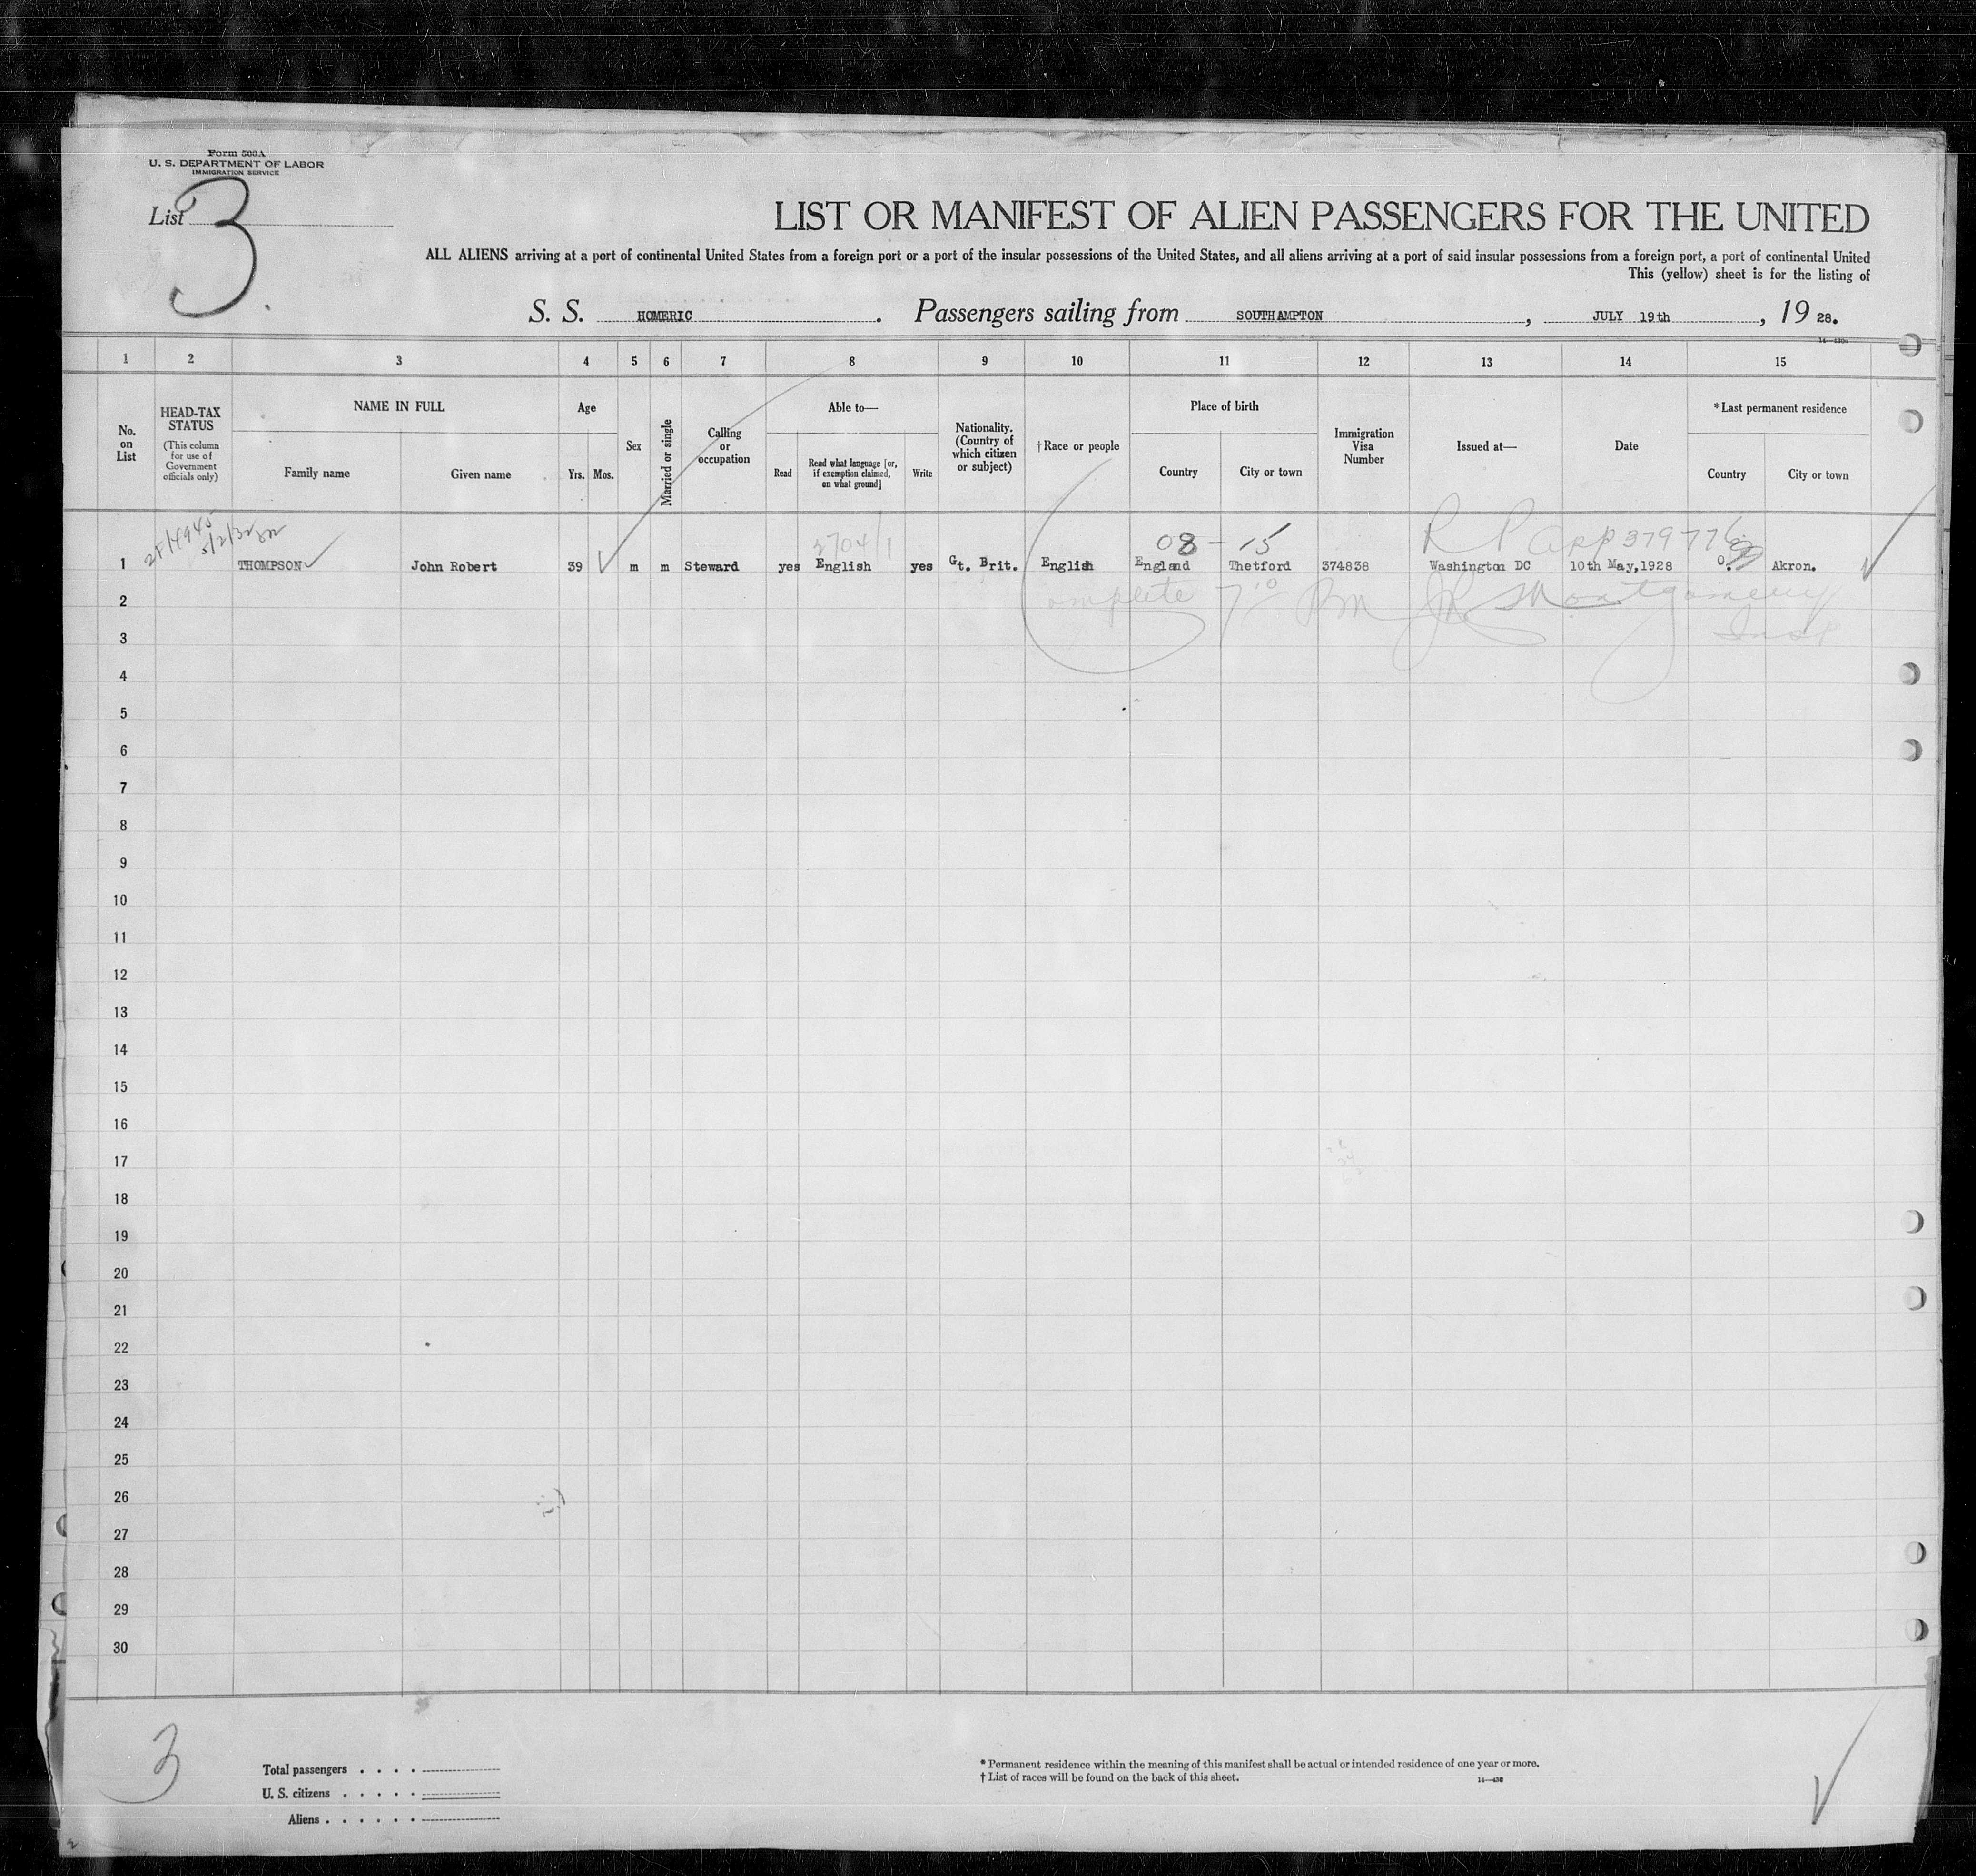 Form 500A
U. S. DEPARTMENT OF LABOR
IMMIGRATION SERVICE
List 3.
LIST OR MANIFEST OF ALIEN PASSENGERS FOR THE UNITED
ALL ALIENS arriving at a port of continental United States from a foreign port or a port of the insular possessions of the United States, and all aliens arriving at a port of said insular possessions from a foreign port, a port of continental United
This (yellow) sheet is for the listing of
S. S. HOMERIC. Passengers sailing from SOUTHAMPTON, JULY 19th, 19 28.
1 2 3 4 5 6 7 8 9 10 11 12 13 14 15
No. on List
HEAD-TAX STATUS
(This column for use of Government officials only)
NAME IN FULL
Family name Given name
Age
Yrs. Mos.
Sex
Married or single
Calling or occupation
Able to—
Read
Read what language [or, if exemption claimed, on what ground]
Write
Nationality. (Country of which citizen or subject)
†Race or people
Place of birth
Country City or town
Immigration Visa Number
Issued at—
Date
*Last permanent residence
Country City or town
2704/1 08 - 15 R P app 379776
1 THOMPSON John Robert 39 m m Steward yes English yes Gt. Brit. English England Thetford 374838 Washington DC 10th May,1928 O. Akron.
2 Complete 7 10 PM Montgomery
3 Insp
4
5
6
7
8
9
10
11
12
13
14
15
16
17
18
19
20
21
22
23
24
25
26
27
28
29
30
3
Total passengers . . . .
U. S. citizens . . . . .
Aliens . . . . . .
* Permanent residence within the meaning of this manifest shall be actual or intended residence of one year or more.
† List of races will be found on the back of this sheet.
14—430